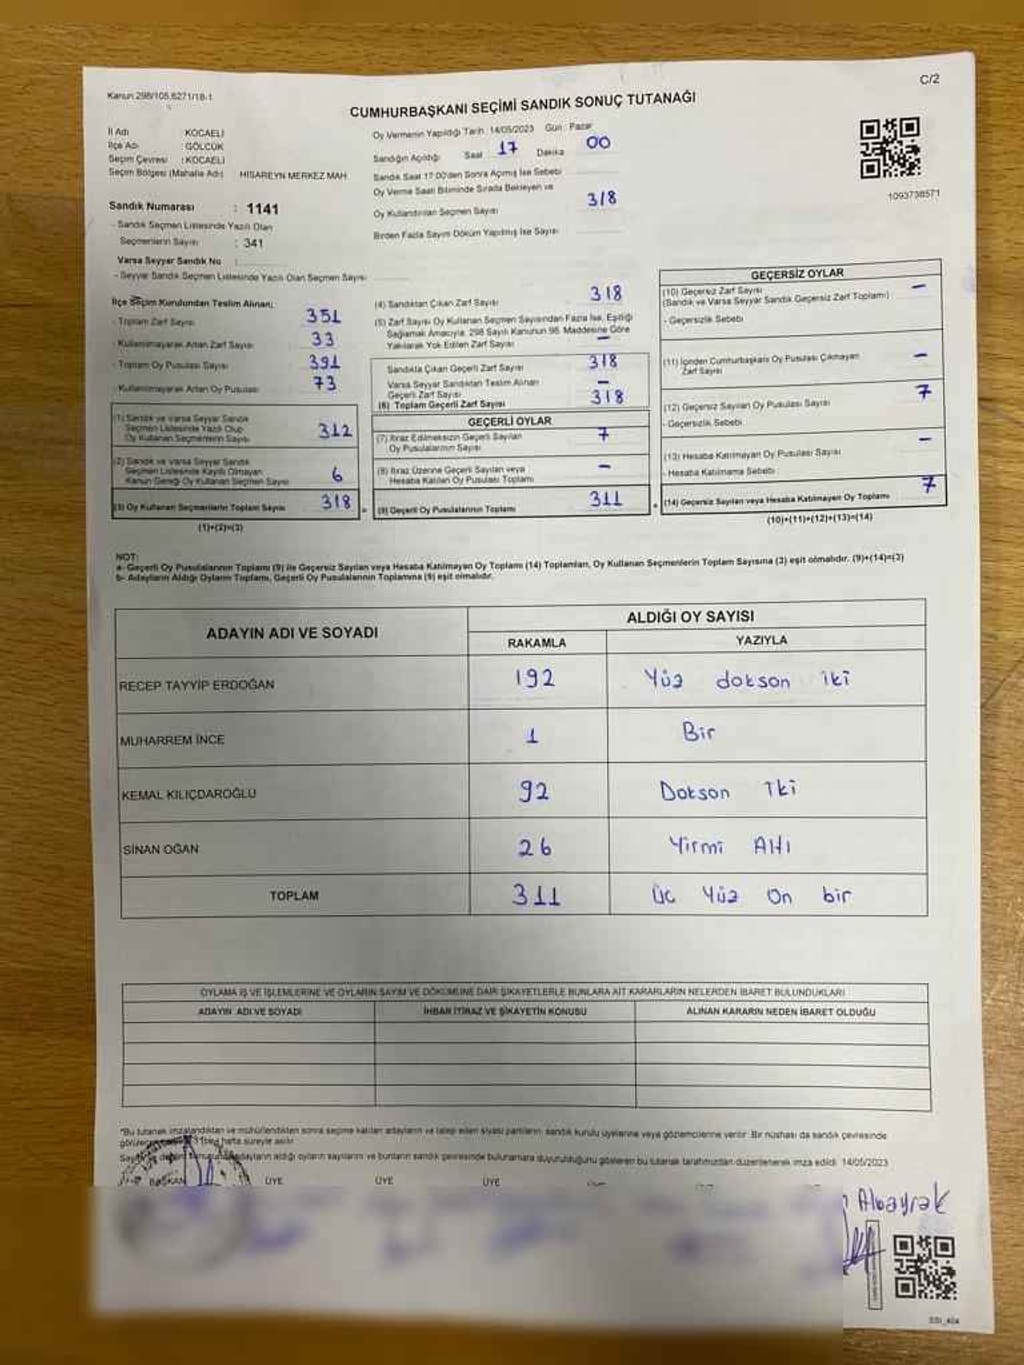 Kanun 298/105,6271/18-1
C/2
CUMHURBAŞKANI SEÇİMİ SANDIK SONUÇ TUTANAĞI
İl Adı : KOCAELİ
İlçe Adı : GÖLCÜK
Seçim Çevresi : KOCAELİ
Seçim Bölgesi (Mahalle Adı) : HISAREYN MERKEZ MAH.
Sandık Numarası : 1141
- Sandık Seçmen Listesinde Yazılı Olan
Seçmenlerin Sayısı : 341
Varsa Seyyar Sandık No :
- Seyyar Sandık Seçmen Listesinde Yazılı Olan Seçmen Sayısı
Oy Vermenin Yapıldığı Tarih : 14/05/2023 Gün : Pazar
Sandığın Açıldığı Saat 17 Dakika 00
Sandık Saat 17:00'den Sonra Açılmış İse Sebebi
Oy Verme Saati Bitiminde Sırada Bekleyen ve
Oy Kullandırılan Seçmen Sayısı 318
Birden Fazla Sayım Döküm Yapılmış İse Sayısı
1093738571
İlçe Seçim Kurulundan Teslim Alınan;
- Toplam Zarf Sayısı 351
- Kullanılmayarak Artan Zarf Sayısı 33
- Toplam Oy Pusulası Sayısı 391
- Kullanılmayarak Artan Oy Pusulası 73
(1) Sandık ve Varsa Seyyar Sandık
Seçmen Listesinde Yazılı Olup
Oy Kullanan Seçmenlerin Sayısı 312
(2) Sandık ve Varsa Seyyar Sandık
Seçmen Listesinde Kayıtlı Olmayan
Kanun Gereği Oy Kullanan Seçmen Sayısı 6
(3) Oy Kullanan Seçmenlerin Toplam Sayısı 318
(1)+(2)=(3)
(4) Sandıktan Çıkan Zarf Sayısı 318
(5) Zarf Sayısı Oy Kullanan Seçmen Sayısından Fazla İse, Eşitliği
Sağlamak Amacıyla, 298 Sayılı Kanunun 98. Maddesine Göre
Yakılarak Yok Edilen Zarf Sayısı –
Sandıkta Çıkan Geçerli Zarf Sayısı 318
Varsa Seyyar Sandıktan Teslim Alınan
Geçerli Zarf Sayısı –
(6) Toplam Geçerli Zarf Sayısı 318
GEÇERLİ OYLAR
(7) İtiraz Edilmeksizin Geçerli Sayılan
Oy Pusulalarının Sayısı 7
(8) İtiraz Üzerine Geçerli Sayılan veya
Hesaba Katılan Oy Pusulaları Toplamı –
(9) Geçerli Oy Pusulalarının Toplamı 311
GEÇERSİZ OYLAR
(10) Geçersiz Zarf Sayısı –
(Sandık ve Varsa Seyyar Sandık Geçersiz Zarf Toplamı)
- Geçersizlik Sebebi
(11) İçinden Cumhurbaşkanı Oy Pusulası Çıkmayan
Zarf Sayısı –
(12) Geçersiz Sayılan Oy Pusulası Sayısı 7
- Geçersizlik Sebebi
(13) Hesaba Katılmayan Oy Pusulası Sayısı –
- Hesaba Katılmama Sebebi
(14) Geçersiz Sayılan veya Hesaba Katılmayan Oy Toplamı 7
(10)+(11)+(12)+(13)=(14)
NOT:
a- Geçerli Oy Pusulalarının Toplamı (9) ile Geçersiz Sayılan veya Hesaba Katılmayan Oy Toplamı (14) Toplamları, Oy Kullanan Seçmenlerin Toplam Sayısına (3) eşit olmalıdır. (9)+(14)=(3)
b- Adayların Aldığı Oyların Toplamı, Geçerli Oy Pusulalarının Toplamına (9) eşit olmalıdır.
ADAYIN ADI VE SOYADI
ALDIĞI OY SAYISI
RAKAMLA YAZIYLA
RECEP TAYYİP ERDOĞAN 192 Yüz dokson iki
MUHARREM İNCE 1 Bir
KEMAL KILIÇDAROĞLU 92 Dokson iki
SİNAN OĞAN 26 Yirmi Altı
TOPLAM 311 Üç Yüz On bir
OYLAMA İŞ VE İŞLEMLERİNE VE OYLARIN SAYIM VE DÖKÜMÜNE DAİR ŞİKAYETLERLE BUNLARA AİT KARARLARIN NELERDEN İBARET BULUNDUKLARI
ADAYIN ADI VE SOYADI İHBAR İTİRAZ VE ŞİKAYETİN KONUSU ALINAN KARARIN NEDEN İBARET OLDUĞU
*Bu tutanak imzalandıktan ve mühürlendikten sonra seçime katılan adayların ve talep eden siyasi partilerin sandık kurulu üyelerine veya gözlemcilerine verilir. Bir nüshası da sandık çevresinde
bir hafta süreyle asılır.
adayların aldığı oyların sayılarını ve bunların sandık çevresinde bulunanlara duyurulduğunu gösteren bu tutanak tarafımızdan düzenlenerek imza edildi. 14/05/2023
BAŞKAN ÜYE ÜYE ÜYE
Albayrak